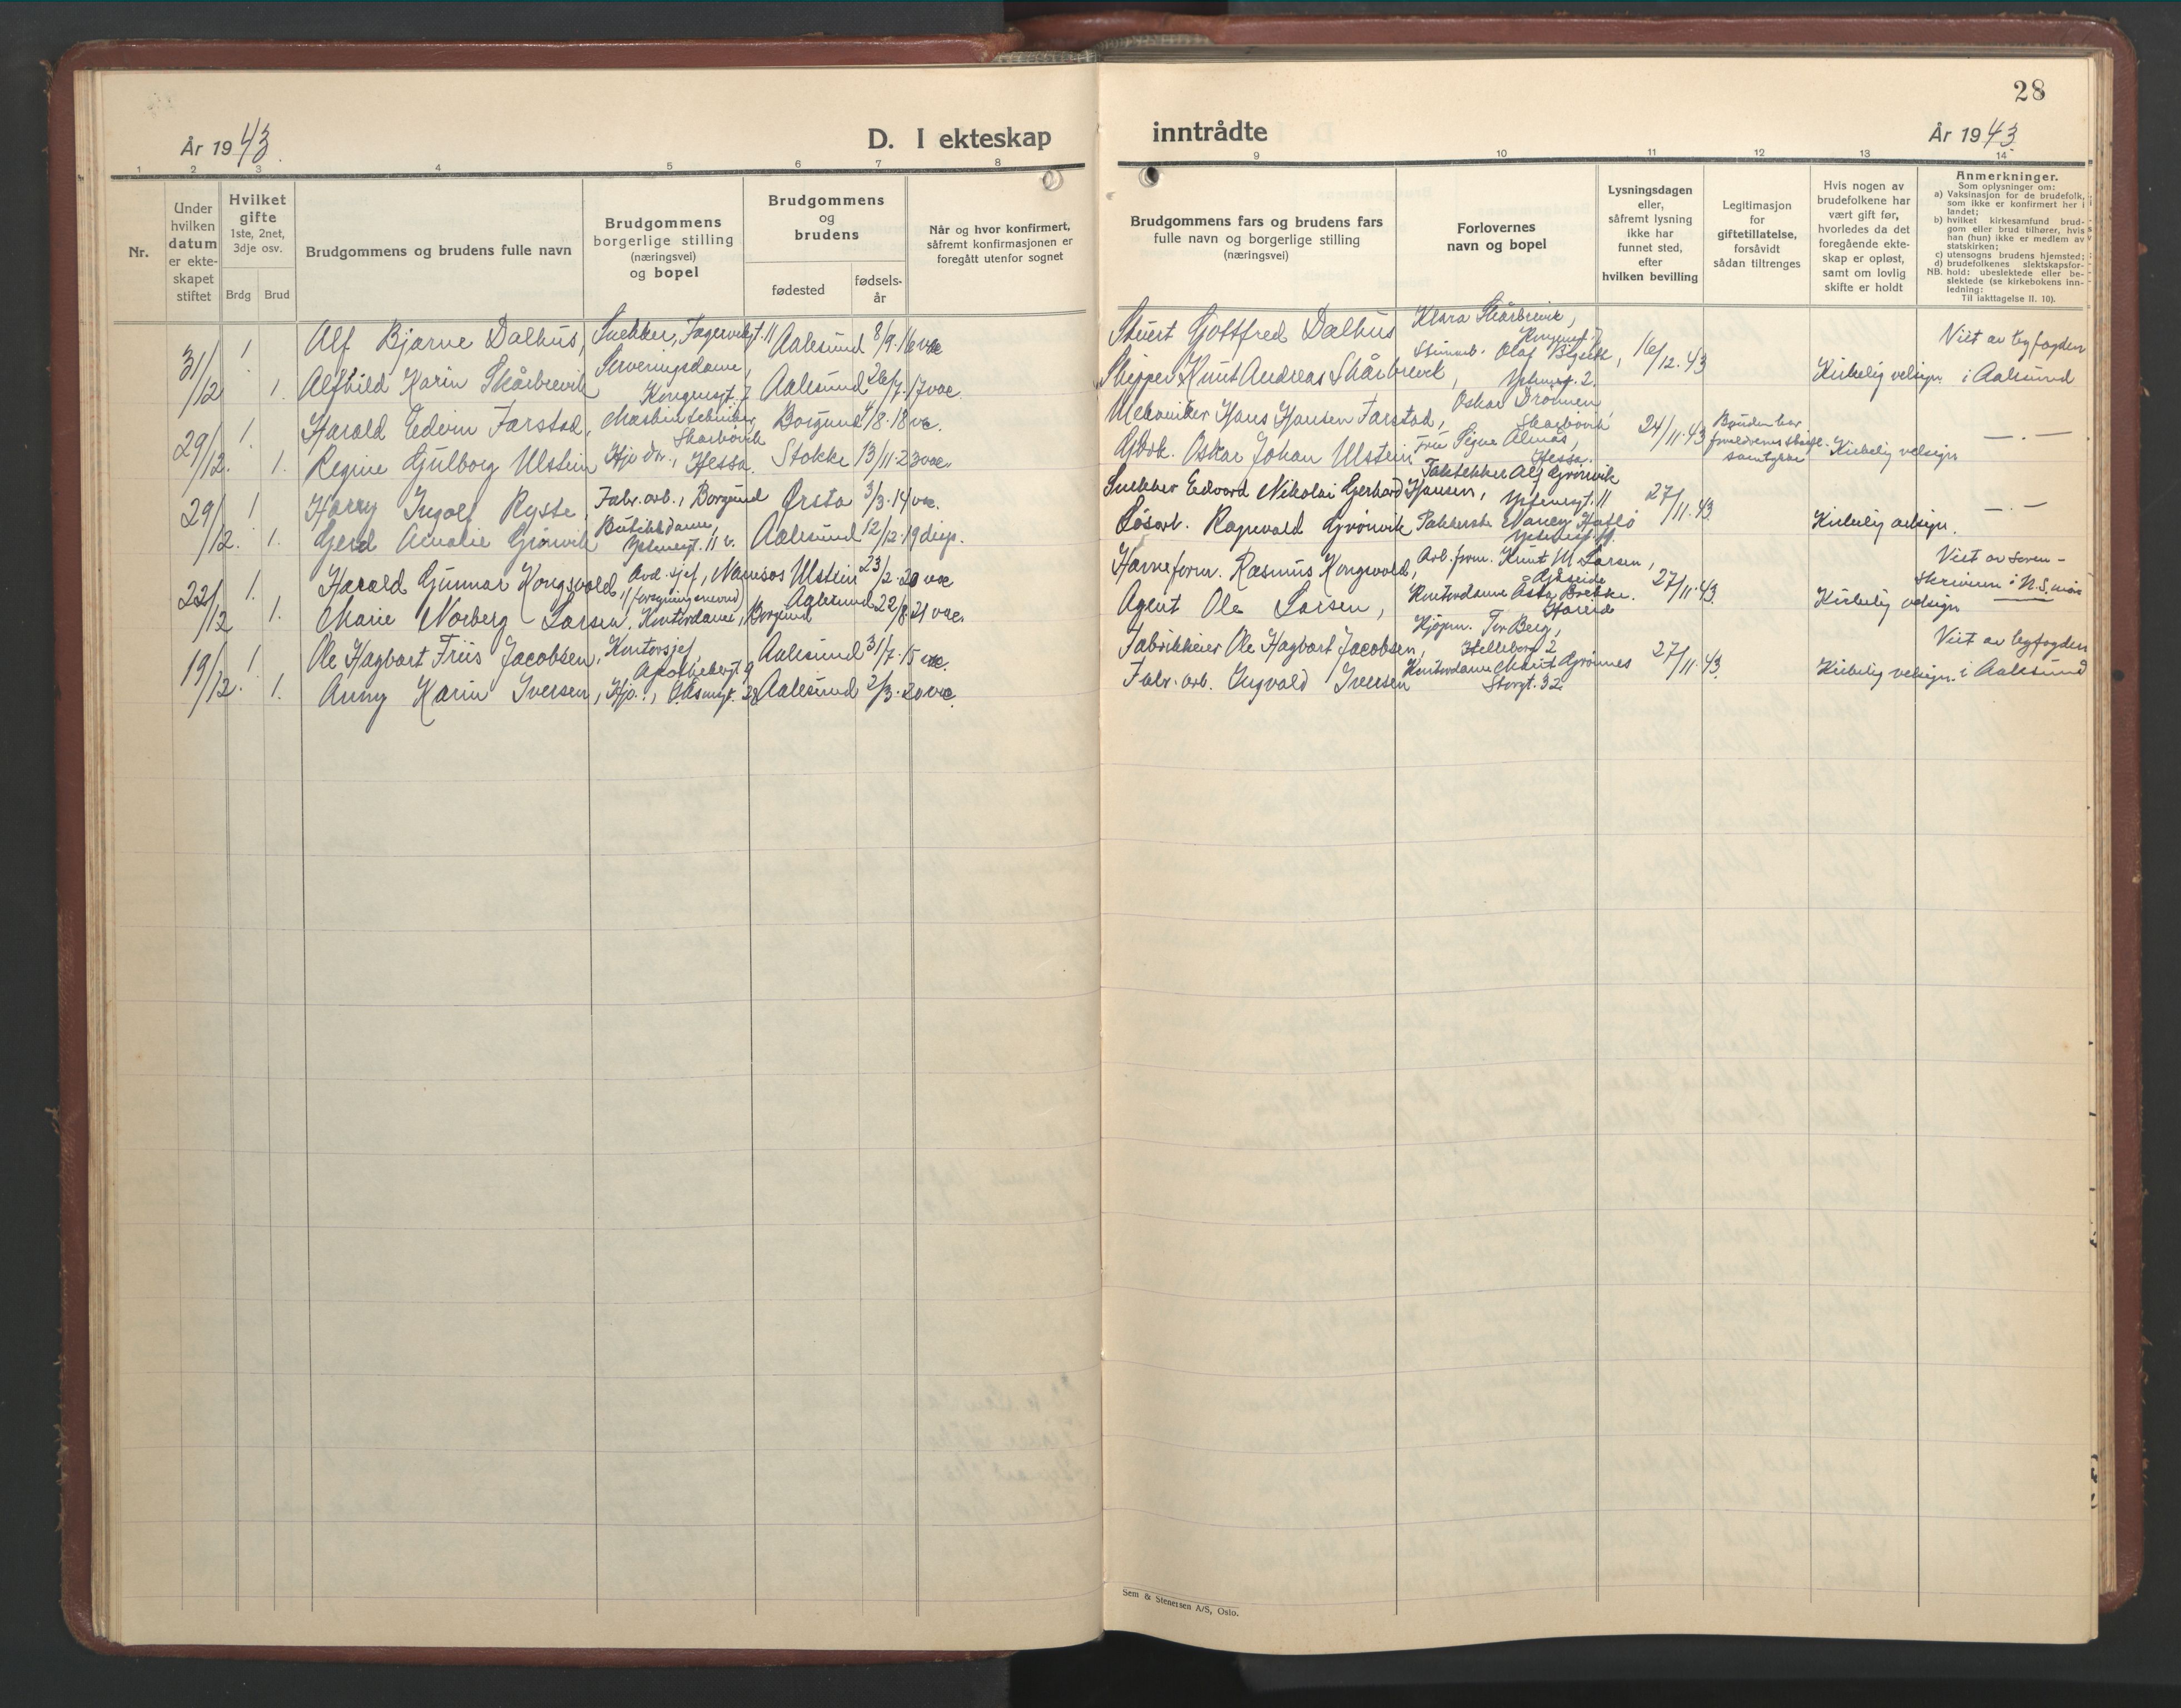 28
År 1943.
D. I ekteskap
inntrådte
År 1943
1 2 3 4 5 6 7 8
9 10 11 12 13 14
Nr.
Under
hvilken
datum
er ekte-
skapet
stiftet
Hvilket
gifte
1ste, 2net,
3dje osv.
Brdg Brud
Brudgommens og brudens fulle navn
Brudgommens
borgerlige stilling
(næringsvei)
og bopel
Brudgommens
og
brudens
fødested
fødsels-
år
Når og hvor konfirmert,
såfremt konfirmasjonen er
foregått utenfor sognet
Brudgommens fars og brudens fars
fulle navn og borgerlige stilling
(næringsvei)
Forlovernes
navn og bopel
Lysningsdagen
eller,
såfremt lysning
ikke har
funnet sted,
efter
hvilken bevilling
Legitimasjon
for
giftetillatelse,
forsåvidt
sådan tiltrenges
Hvis nogen av
brudefolkene har
vært gift før,
hvorledes da det
foregående ekte-
skap er opløst,
samt om lovlig
skifte er holdt
Anmerkninger.
Som oplysninger om:
a) Vaksinasjon for de brudefolk,
som ikke er konfirmert her i
landet;
b) hvilket kirkesamfund brud-
gom eller brud tilhører, hvis
han (hun) ikke er medlem av
statskirken;
c) utensogns brudens hjemsted;
d) brudefolkenes slektskapsfor-
NB. hold: ubeslektede eller be-
slektede (se kirkebokens inn-
ledning:
Til iakttagelse II. 10).
31/12 1. Alf Bjarne Dalhus, Snekker, Fagervikgt. 11 Aalesund 8/9.16 vac
Stuert Gottfred Dalhus Klara Skårbrevik, Kongensgt. 7 16/12.43 Viet av byfogden
1. Alfhild Karin Skårbrevik Serveringsdame, Kongensgt. 7 Aalesund 26/7.17 vac.
Skipper Knut Andreas Skårbrevik, Olaf Kirkelig velsign. i Aalesund
29/12. 1. Harald Edvin Farstad, Maskintekniker, Skarbøvik Borgund 4/8.18 vac.
Mekaniker Hans Hansen Farstad, Oskar Drønnen Skarbøvik 24/11.43 Bruden har foreldrenes skriftl. samtykke — . —
1. Regine Gjulborg Ulstein Hjo dr., Hessa. Stokke 13/11.23 vac.
Oskar Johan Ulstein Fru Signe Almås, Hessa. Kirkelig velsign.
29/12. 1 Harry Ingolf Ryste, Fabr. arb., Borgund Ørsta 3/3.14 vac.
Snekker Edvard Nikolai Gerhard Hansen, Taktekker Alf Grønvik 27/11.43. — . —
1. Gerd Amalie Grønvik Butikkdame, 11 v. Aalesund 12/12.19 disp.
Løsarb. Ragnvald Grønvik Nancy Kirkelig velsign.
22/12 1. Harald Gunnar Kongsvold, Avd. sjef, Namsos (forsyningsnevnd) Ulstein 23/2.20 vac
Havneform. Rasmus Kongsvold, Arb. form. Knut M. Larsen, 27/11.43. Viet av soren-
1. Marie Norberg Larsen, Kontordame, Borgund Aalesund 22/8.21 vac.
Agent Ole Larsen, Kontordame Åsta Brekke. Hareide Kirkelig velsign skriveren i N.S. møre
19/12. 1 Ole Hagbart Friis Jacobsen, Kontorsjef, Apothekergt. 9 Aalesund 31/7.15 vac.
Fabrikkeier Ole Hagbart Jacobsen, Kjøpm. Tor Berg, Helleborg 2 27/11.43. Viet av byfogden
1. Anny Karin Iversen, Hjo., 28 Aalesund 2/3.20 vac.
Fabr. arb. Ingvald Iversen Kontordame Marit Grønnes Storgt. 32. Kirkelig velsign. i Aalesund
Sem & Stenersen A/S, Oslo.